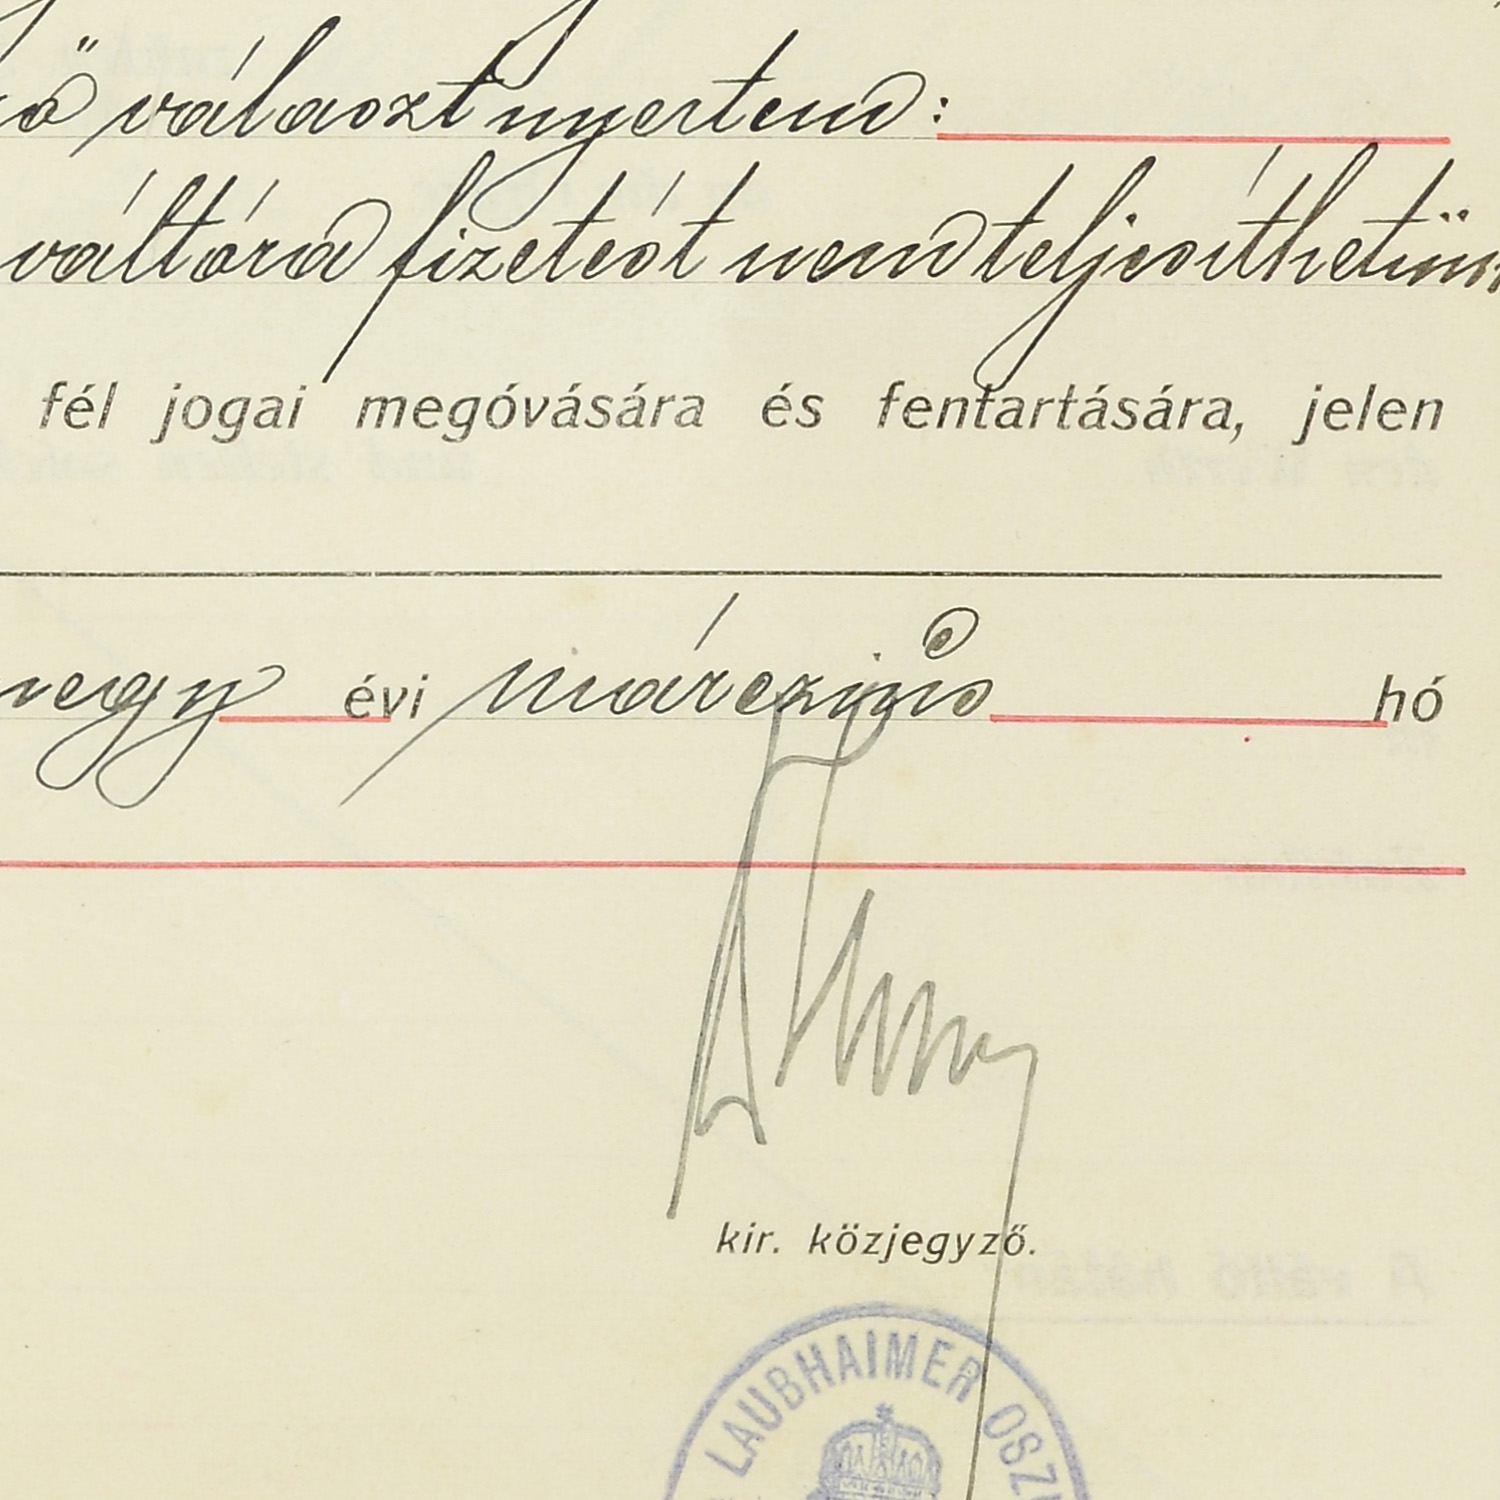 választ nyertem:
váltóra fizetést nem teljesíthetünk
fél jogai megóvására és fentartására, jelen
négy évi márczius hó
kir. közjegyző.
LAUBHAIMER OSZ